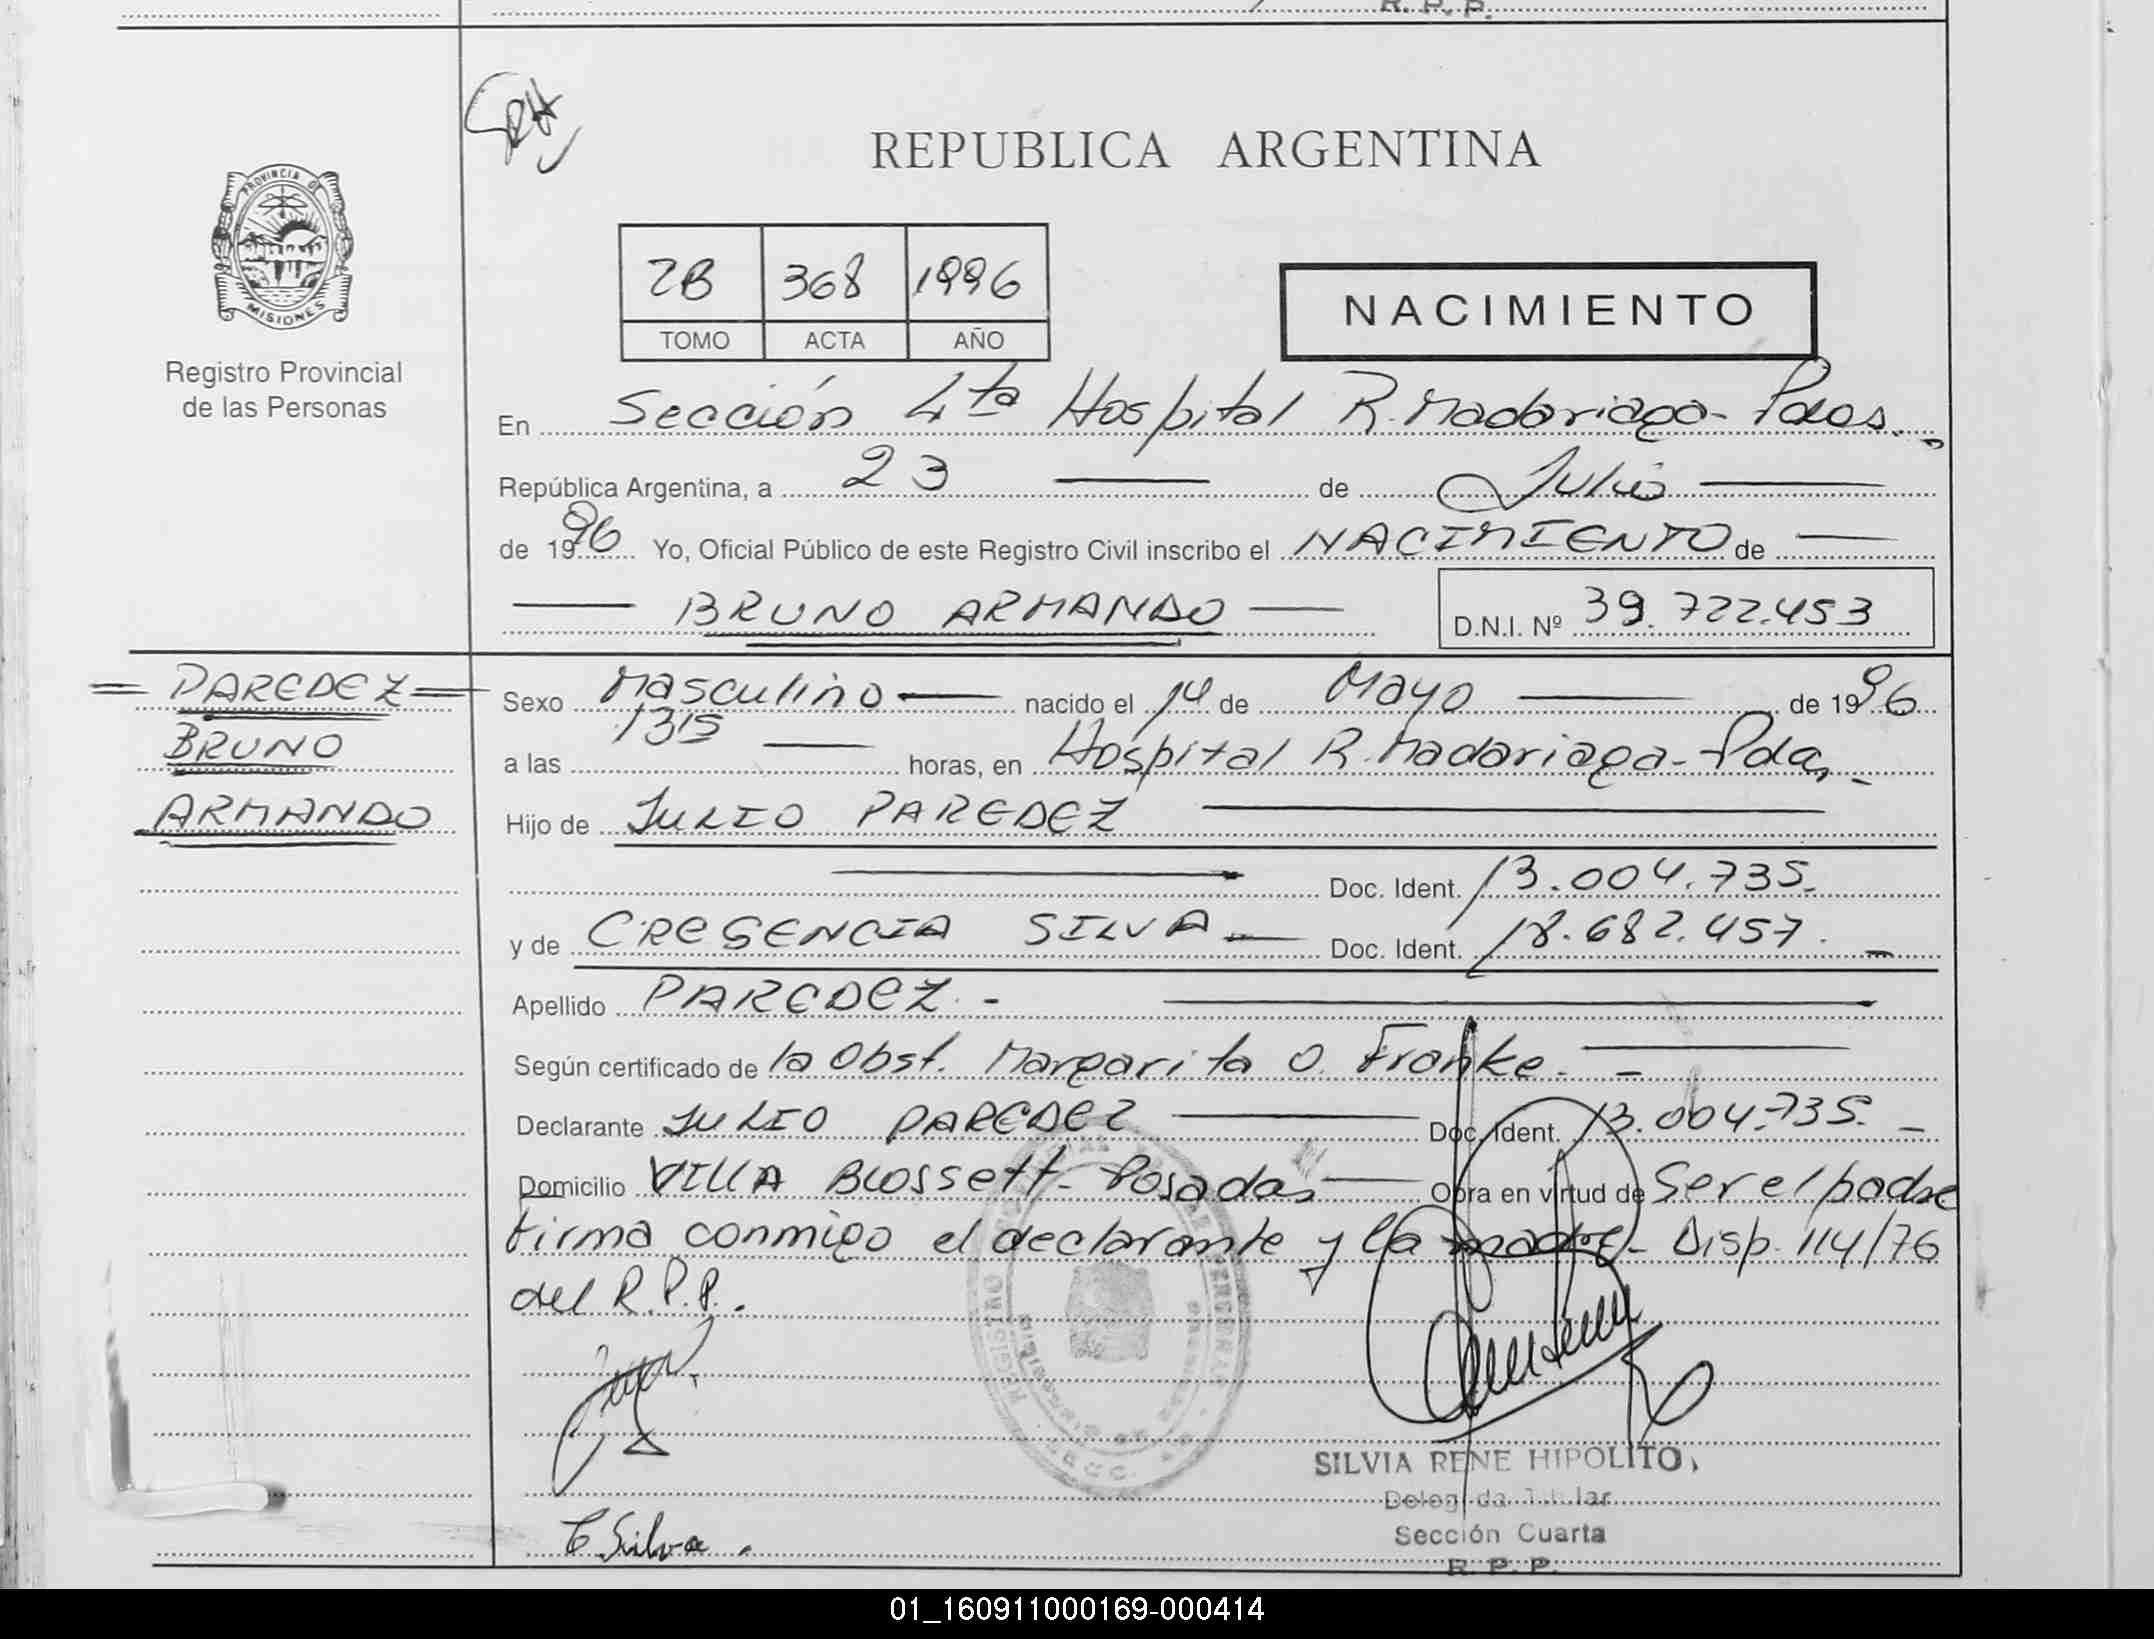 R. P. P.
REPUBLICA ARGENTINA
PROVINCIA DE
MISIONES
Registro Provincial
de las Personas
2B 368 1996
TOMO ACTA AÑO
NACIMIENTO
En Sección 4ta Hospital R. Madariaga- Pdas.-
República Argentina, a 23 de Julio
de 1996 Yo, Oficial Público de este Registro Civil inscribo el NACIMIENTO de
BRUNO ARMANDO D.N.I. Nº 39.722.453
= PAREDEZ =
BRUNO
ARMANDO
Sexo Masculino nacido el 14 de Mayo de 1996
a las 1315 horas, en Hospital R. Madariaga- Pdas.-
Hijo de JULIO PAREDEZ
Doc. Ident. 13.004.735.
y de CRESENCIA SILVA Doc. Ident. 18.682.457. -
Apellido PAREDEZ. -
Según certificado de la Obst. Margarita O. Franke. -
Declarante JULIO PAREDEZ Doc. Ident. 13.004.735. -
Domicilio VILLA BLOSSETT- Posadas Obra en virtud de Ser el padre
firma conmigo el declarante y la madre- Disp. 114/76
del R.P.P.
SILVIA RENE HIPOLITO
Delegada Titular
Sección Cuarta
R. P. P.
C Silva.
01_160911000169-000414